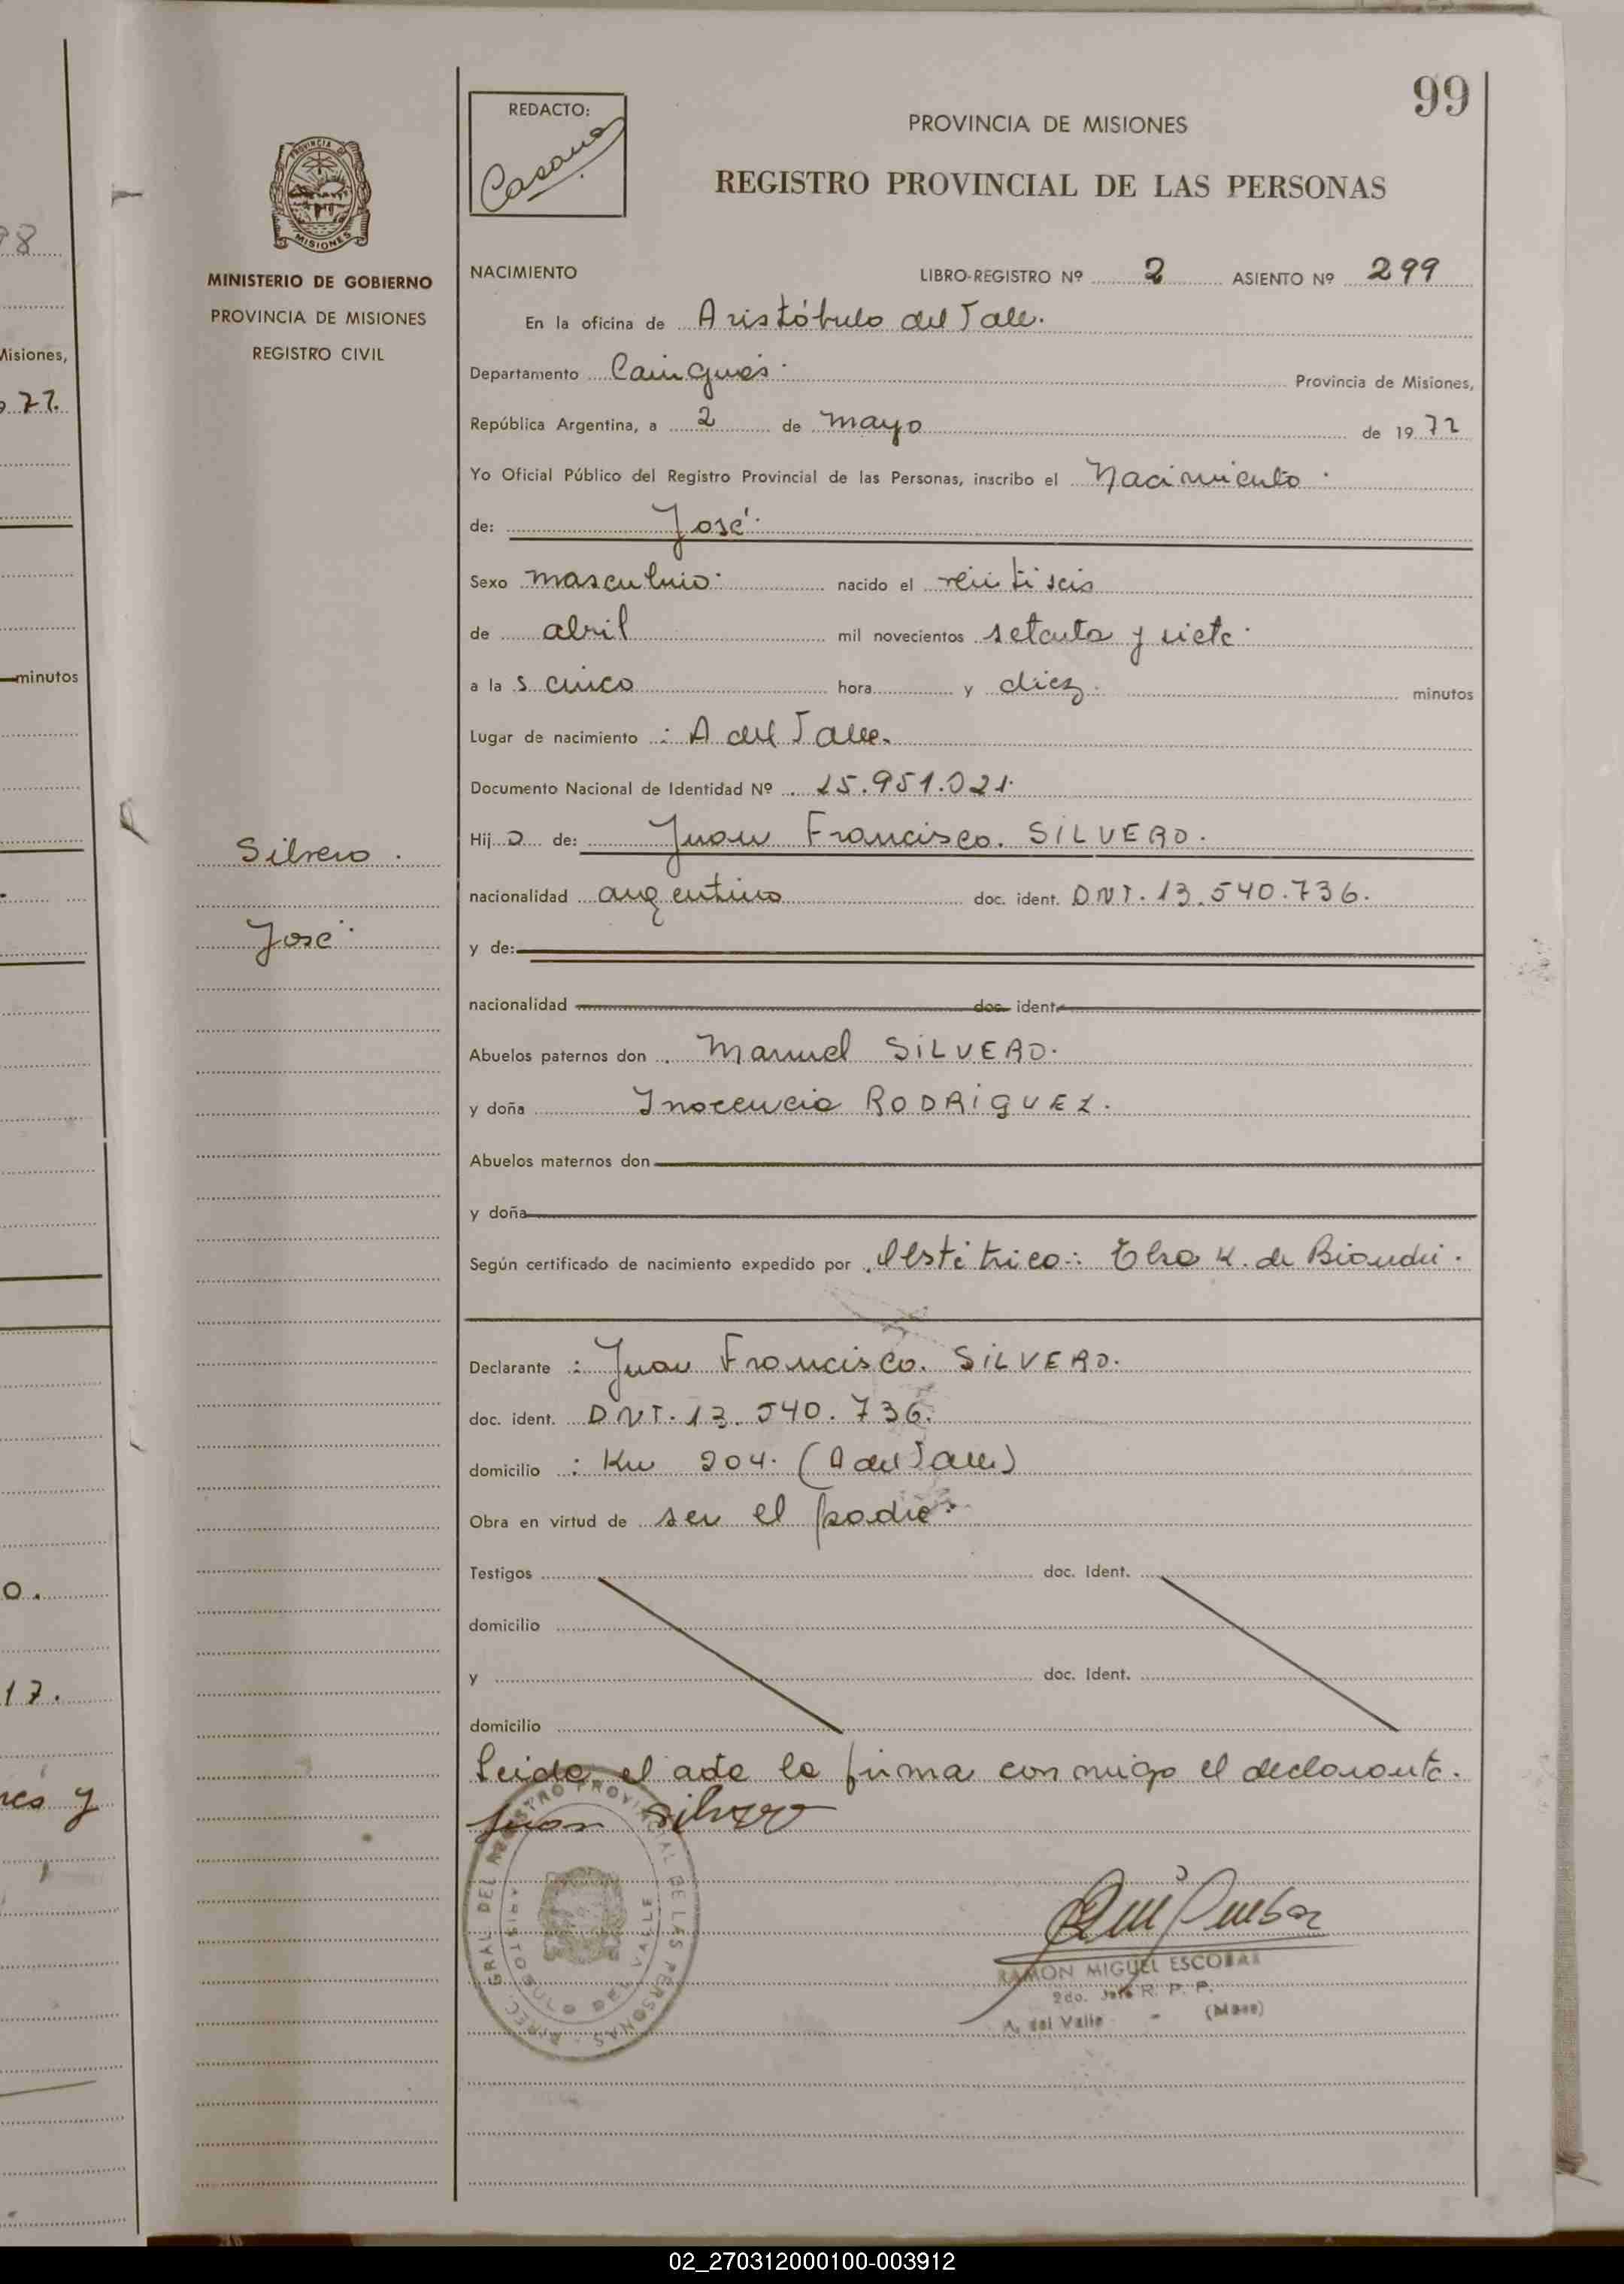 99
REDACTO:
PROVINCIA DE MISIONES
REGISTRO PROVINCIAL DE LAS PERSONAS
MISIONES
MINISTERIO DE GOBIERNO
PROVINCIA DE MISIONES
REGISTRO CIVIL
NACIMIENTO LIBRO-REGISTRO Nº 2 ASIENTO Nº 299
En la oficina de Aristóbulo del Valle.
Departamento Cainguás Provincia de Misiones,
República Argentina, a 2 de mayo de 1977
Yo Oficial Público del Registro Provincial de las Personas, inscribo el Nacimiento
de: José
Sexo masculino nacido el veintiseis
de abril mil novecientos setenta y siete
a las cinco hora y diez minutos
Lugar de nacimiento: A del Valle.
Documento Nacional de Identidad Nº 25.951.021.
Hijo de: Juan Francisco. SILVERO.
nacionalidad argentino doc. ident. DNI. 13.540.736.
y de:
nacionalidad doc. ident.
Abuelos paternos don Manuel SILVERO.
y doña Inocencia RODRIGUEZ.
Abuelos maternos don
y doña
Según certificado de nacimiento expedido por Obstétrica: Elsa K. de
Declarante: Juan Francisco. SILVERO.
doc. ident. DNI. 13.540.736.
domicilio: Km 204. (A del Valle)
Obra en virtud de ser el padre.
Testigos doc. Ident.
domicilio
y doc. Ident.
domicilio
Leida el acta la firma conmigo el declarante.
Juan Silvero
Silvero.
José
DIREC. GRAL. DEL REGISTRO PROVINCIAL DE LAS PERSONAS
ARISTOBULO DEL VALLE
RAMON MIGUEL ESCOBAR
2do. Jefe R. P. P.
A. del Valle - (Mnes)
98
Misiones,
77.
minutos
0.
17.
y
02_270312000100-003912